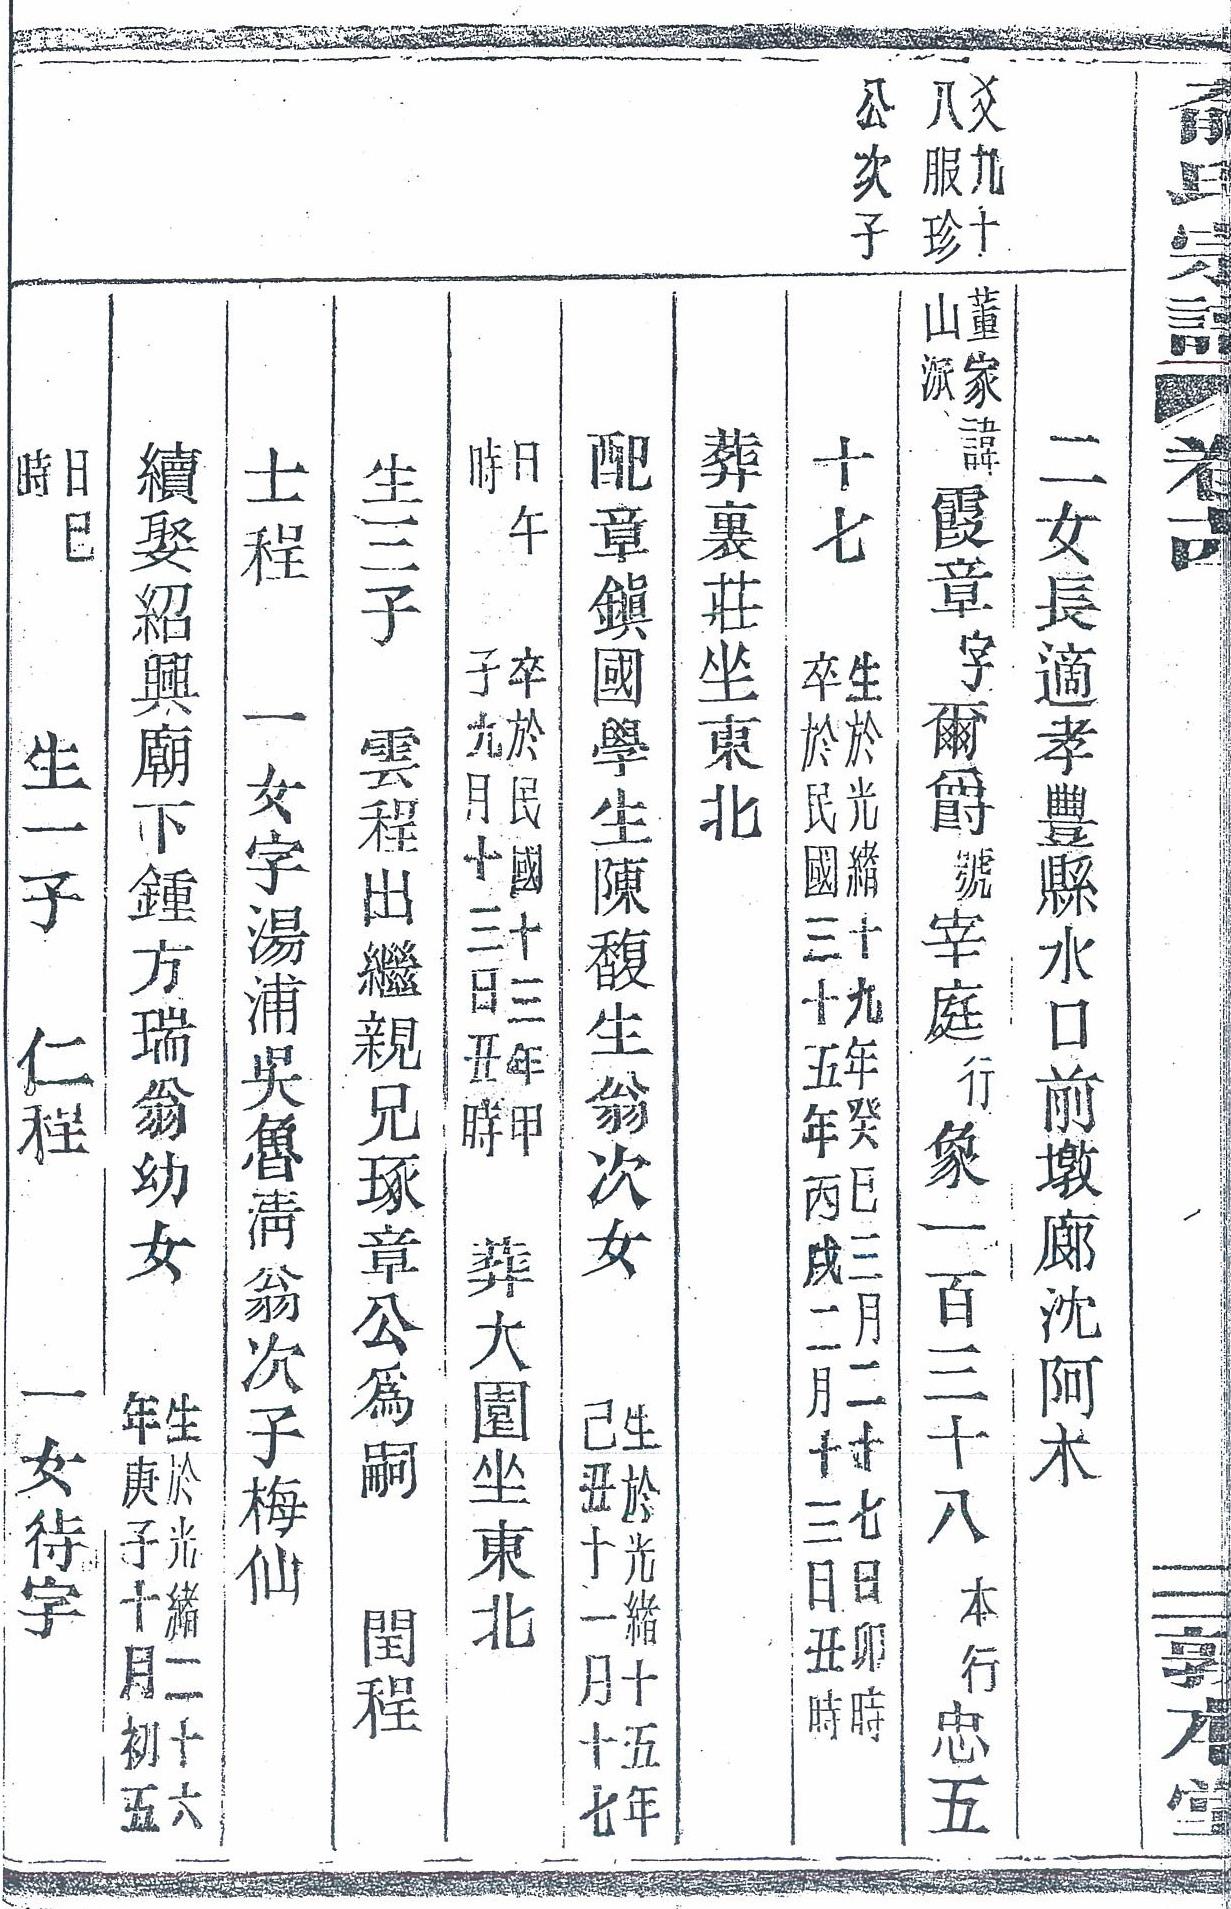 俞氏宗譜 卷 敦本堂
爻九十
八服珍
公次子
二女長適孝豐縣水口前墩廊沈阿木
董家山派 諱霞章字爾爵號宰庭行象一百三十八 本行忠五
十七 生於光緒十九年癸巳三月二十七日卯時 卒於民國三十五年丙戌二月十三日丑時
葬裏莊坐東北
配章鎮國學生陳馥生翁次女 生於光緒十五年己丑十一月十七
日午時 卒於民國十三年甲子九月十三日丑時 葬大園坐東北
生三子 雲程出繼親兄琢章公為嗣 閏程
士程 一女字湯浦吳魯淸翁次子梅仙
續娶紹興廟下鍾方瑞翁幼女 生於光緒二十六年庚子十月初五
日巳時 生一子 仁程 一女待字